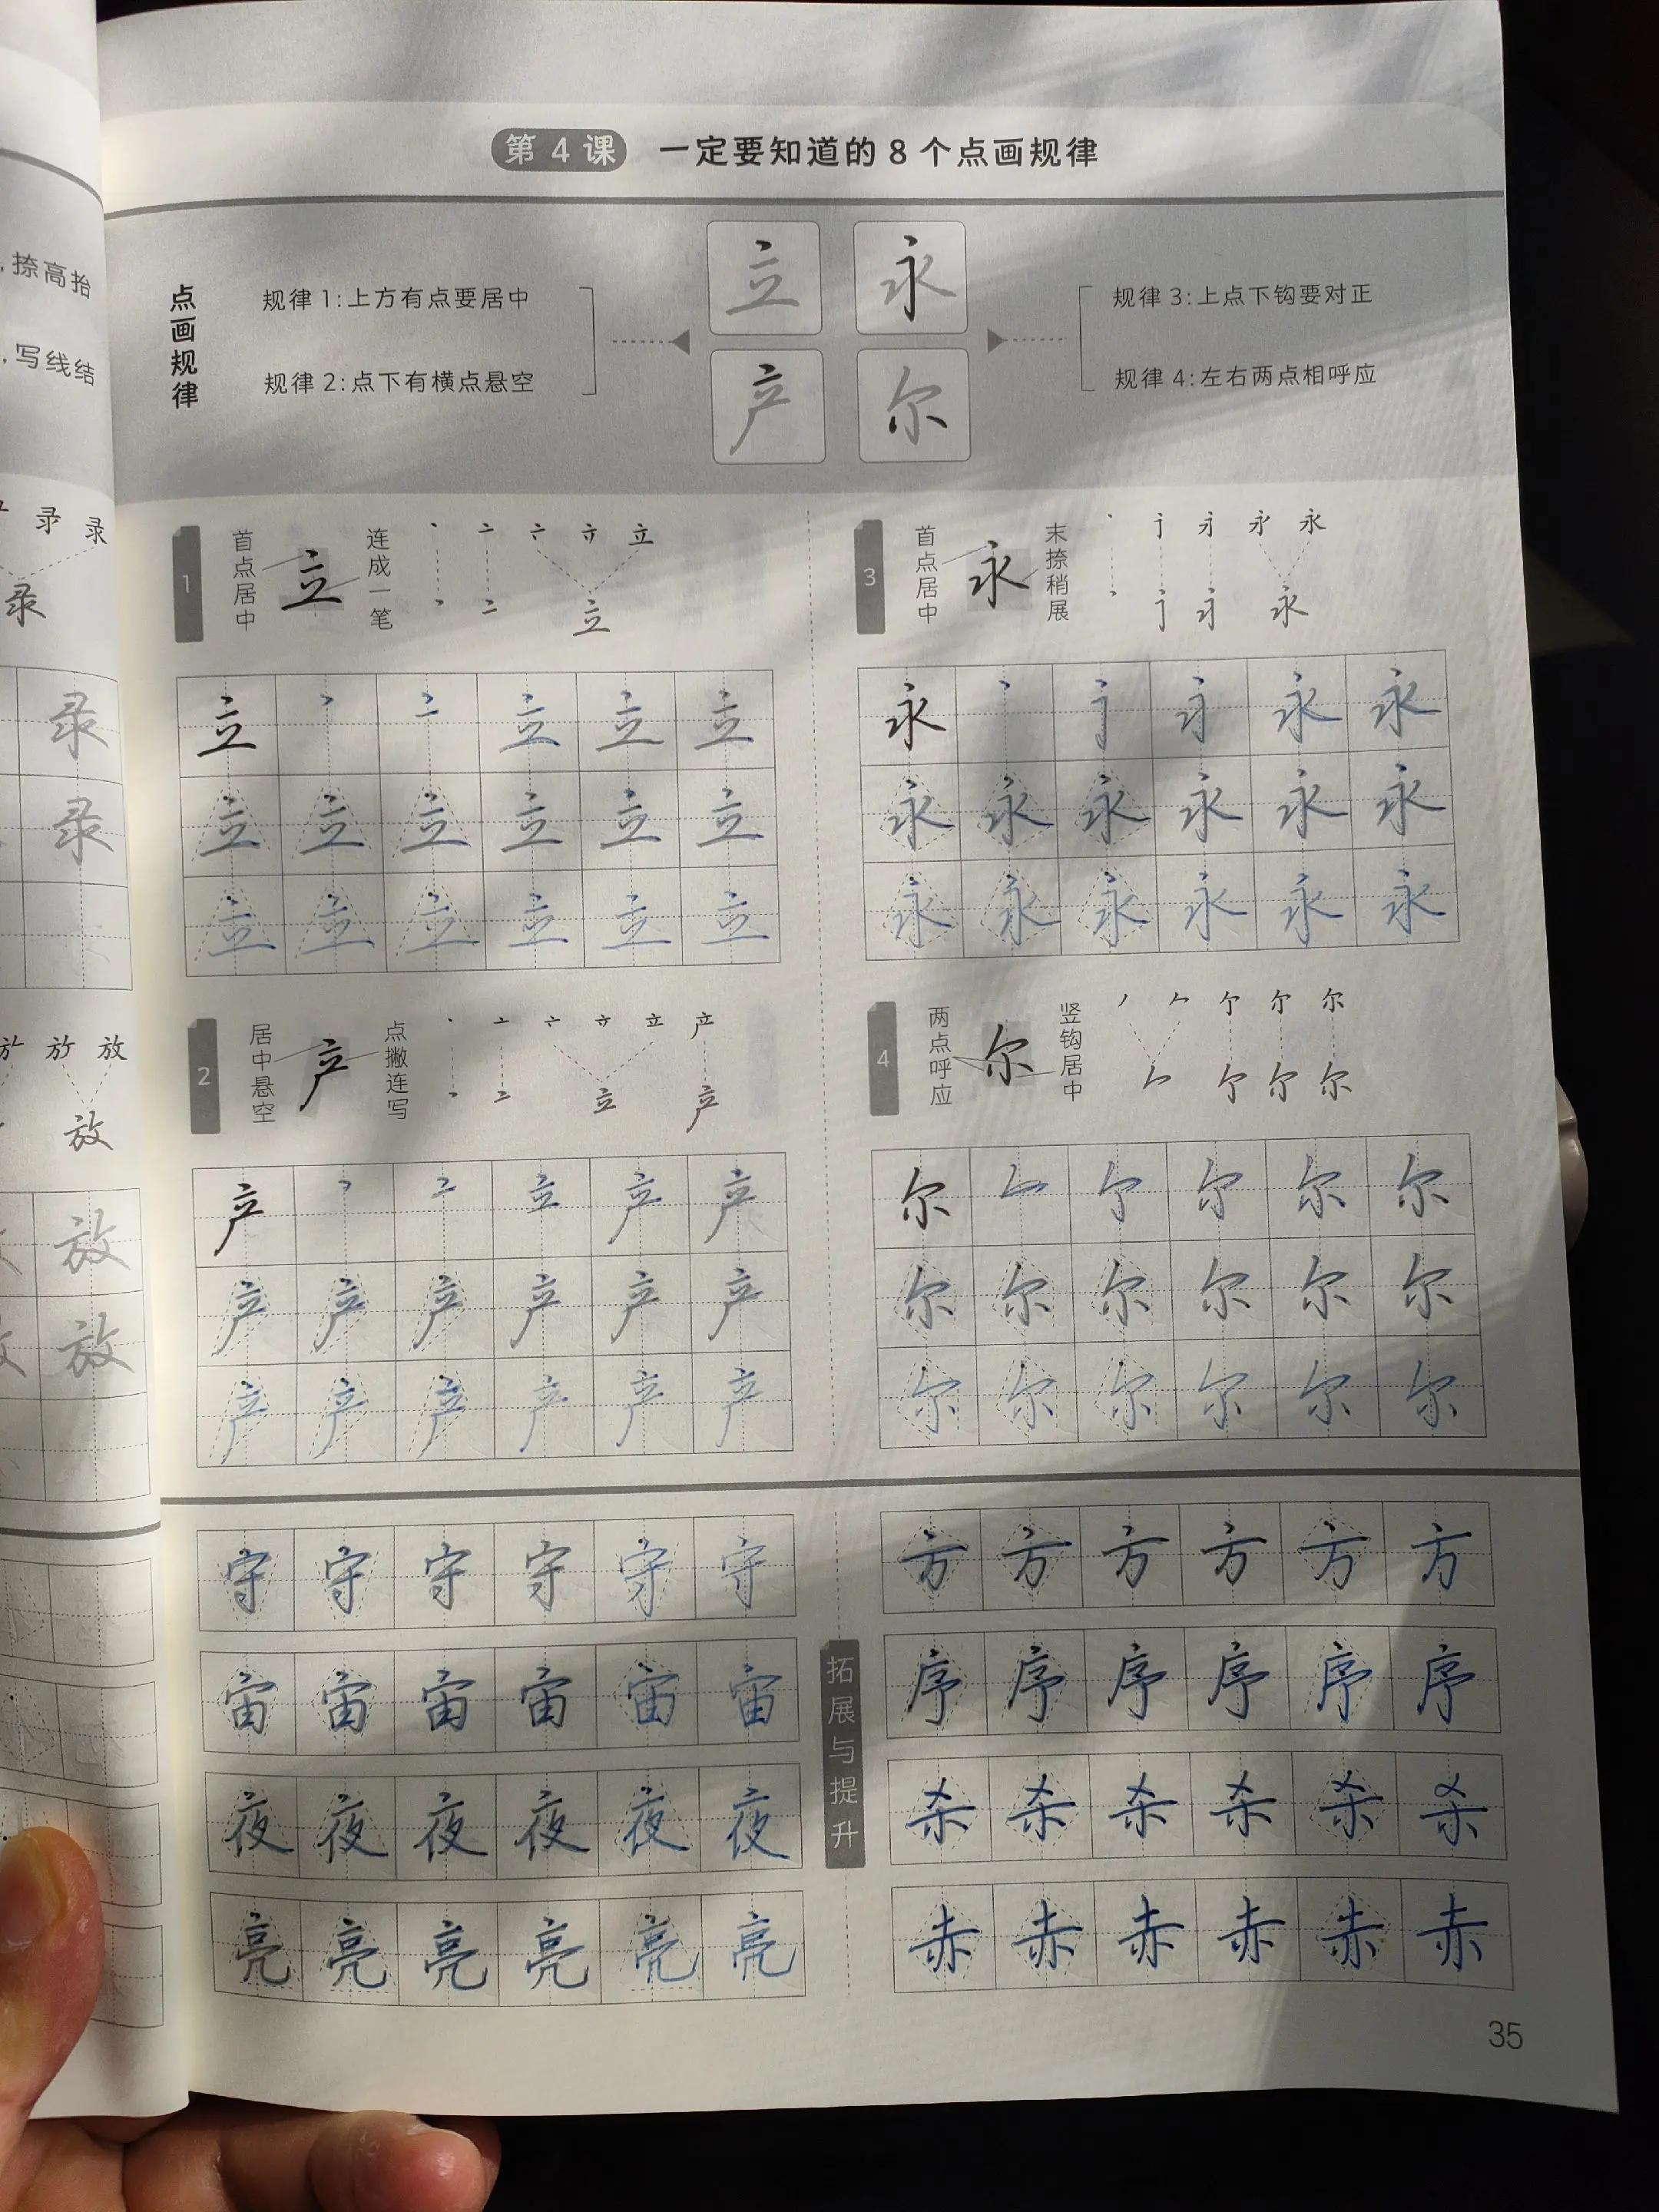 第4课 一定要知道的8个点画规律
点画规律
规律1:上方有点要居中
规律2:点下有横点悬空
立 永
产 尔
规律3:上点下钩要对正
规律4:左右两点相呼应
,捺高抬
,写线结
录 录
录
录
录
放 放
放
放
放
1 首点居中 立 连成一笔
立
立
立 立 立 立
立 立 立 立 立 立
立 立 立 立 立 立
2 居中悬空 产 点撇连写
立 产
立 产
产 立 产 产
产 产 产 产 产 产
产 产 产 产 产 产
3 首点居中 永 末捺稍展
永
永
永 永 永
永 永 永 永 永 永
永 永 永 永 永 永
4 两点呼应 尔 竖钩居中
尔
尔
尔 尔 尔
尔 尔 尔 尔 尔 尔
尔 尔 尔 尔 尔 尔
守 守 守 守 守 守
宙 宙 宙 宙 宙 宙
夜 夜 夜 夜 夜 夜
亮 亮 亮 亮 亮 亮
拓展与提升
方 方 方 方 方 方
序 序 序 序 序 序
杀 杀 杀 杀 杀 杀
赤 赤 赤 赤 赤 赤
35